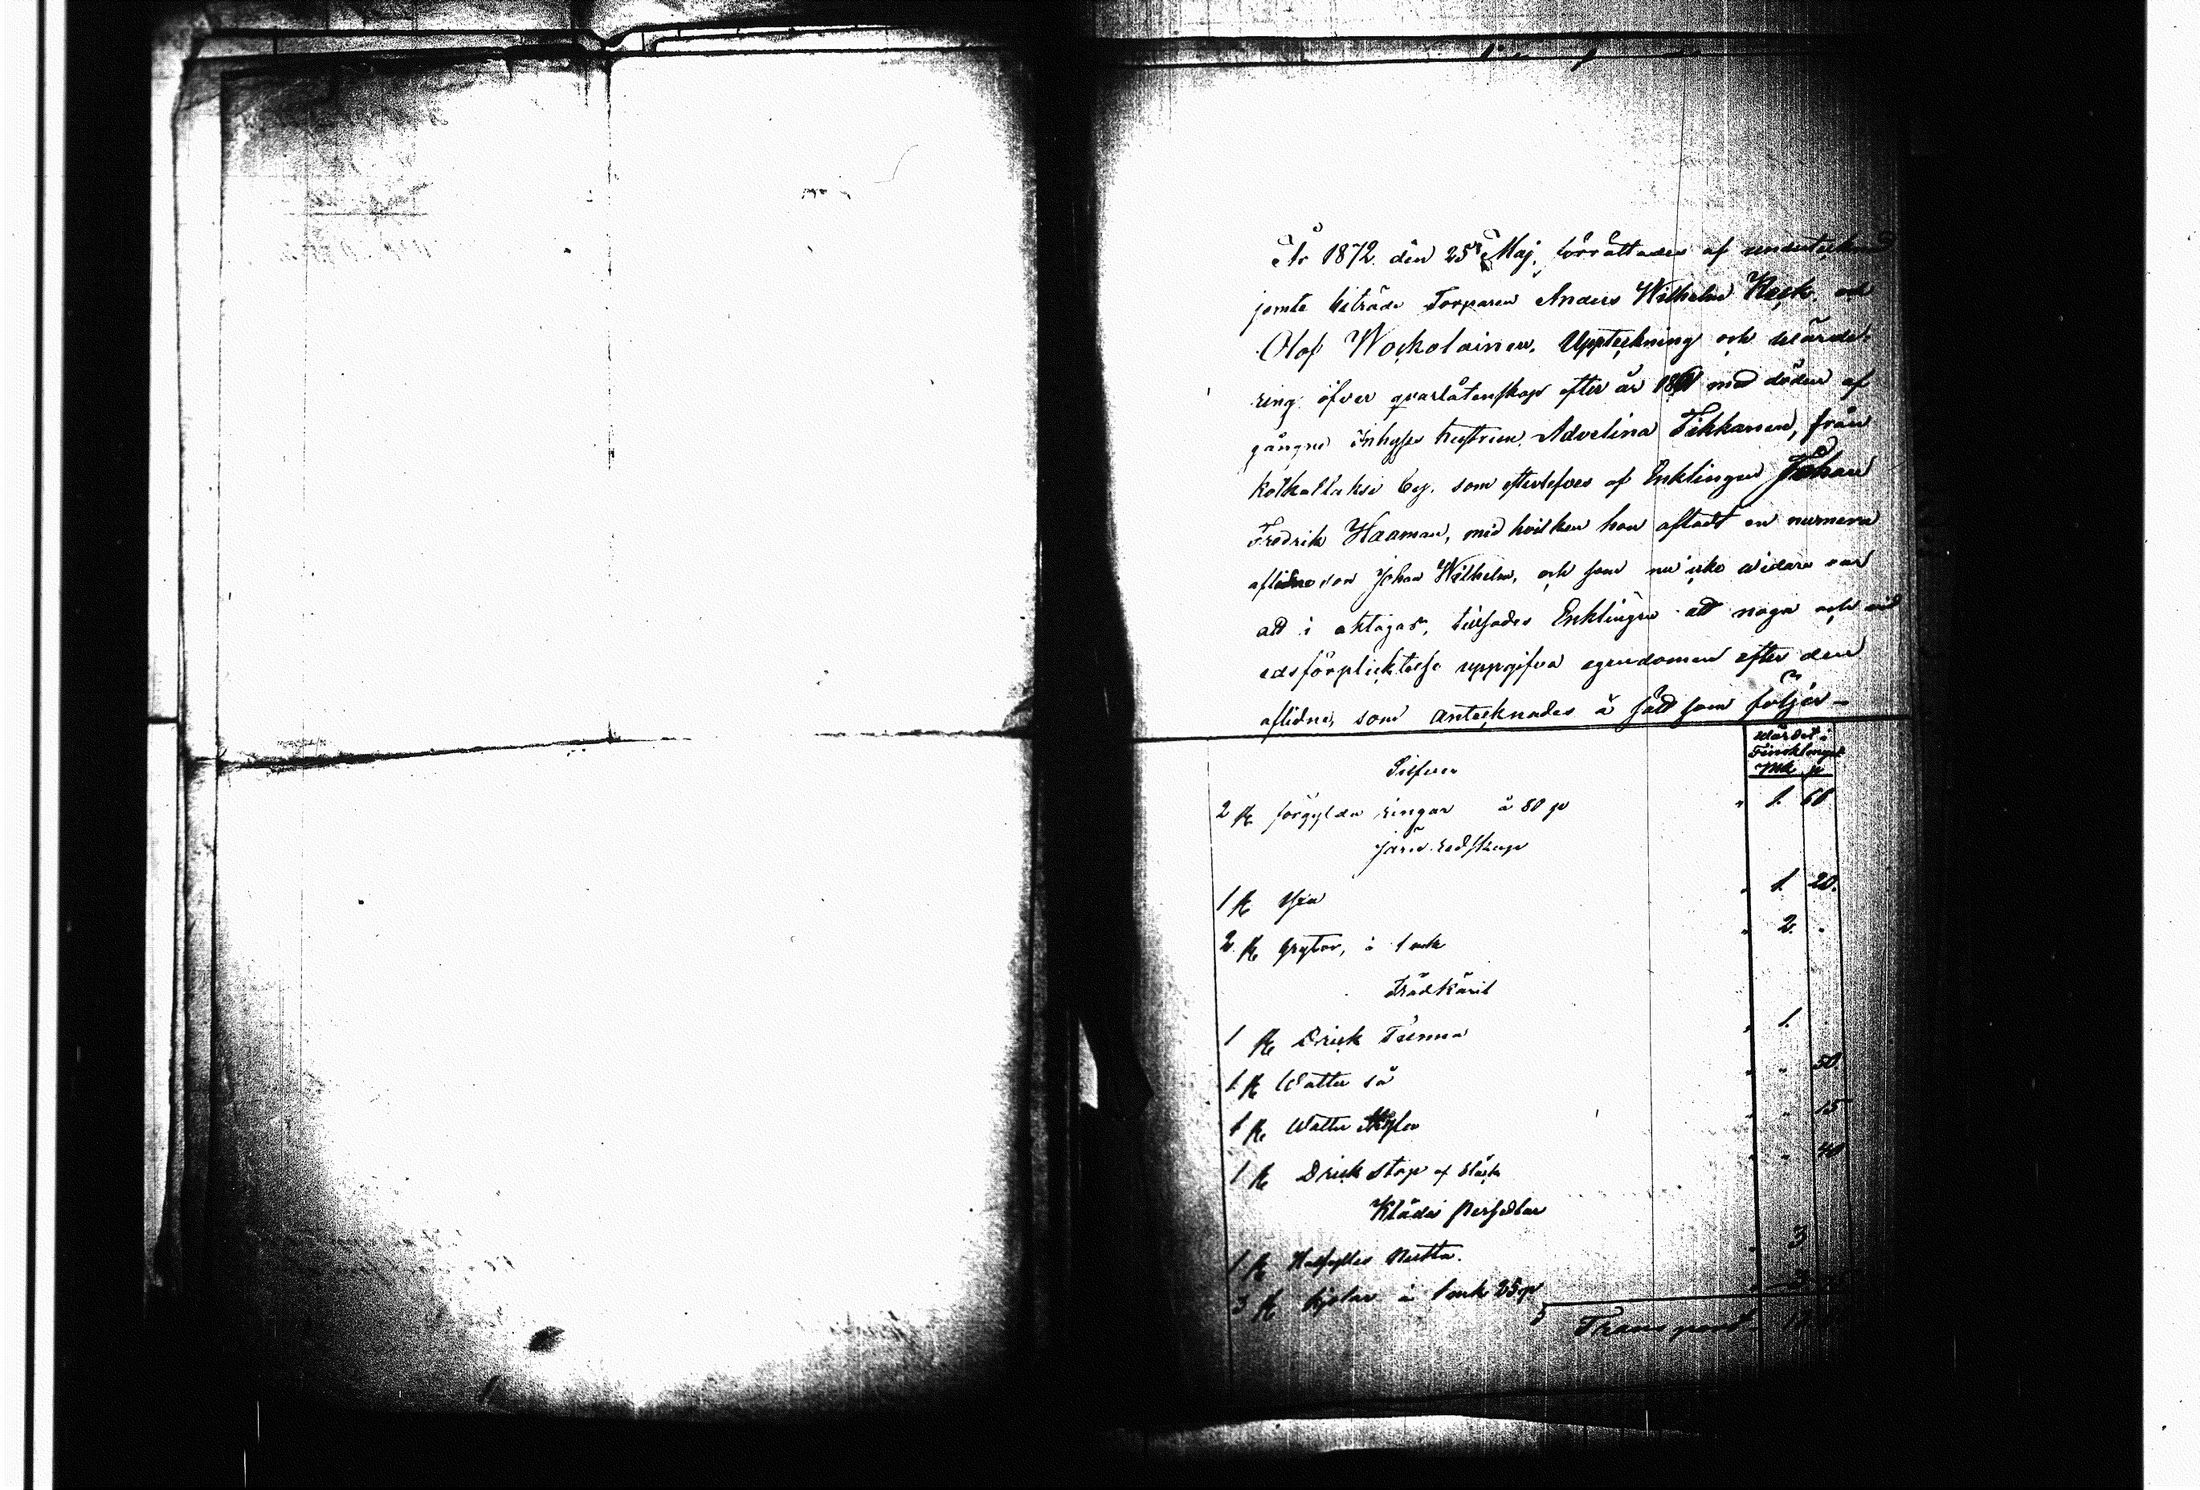 År 1872 den 25 Maj, förrättades af undertecknad
jemte biträde Torparen Anders Wilhelm Keck och
Olof Wockolainen, Uppteckning och wärde-
ring öfver qvarlåtenskap efter år med döden af
gångne Inhyses hustrun Adoelina Tikkanen, från
Kolkallaksi by, som efterlefves af Enklingen Johan
Fredrik Haaman, med hvilken hon aflade en numera
aflidne son Johan Wilhelm, och som nu icke widare var
att i akttagas, tillsades Enklingen att noga och vid
edsförplicktelse uppgifva egendomen efter den
aflidne, som antecknades å sätt som följer —
Wärdet i
Finsk
Mk p
Silfver
2 st förgylda ringar à 80 p " 1. 60
Jern redskap
1 st Yxa " 1. 20.
2. st Grytor, à 1 mk " 2. "
Trädkäril
1 st Drick Tunna " 1.
1. st Watten så " " 50.
1 st Watten " " 15
1 st Drick stop af bläck " " 40
Kläde Persedlar
1 st Halfylles " 3
3 st Kjolar à 1 mk 25 p " 3
Transport